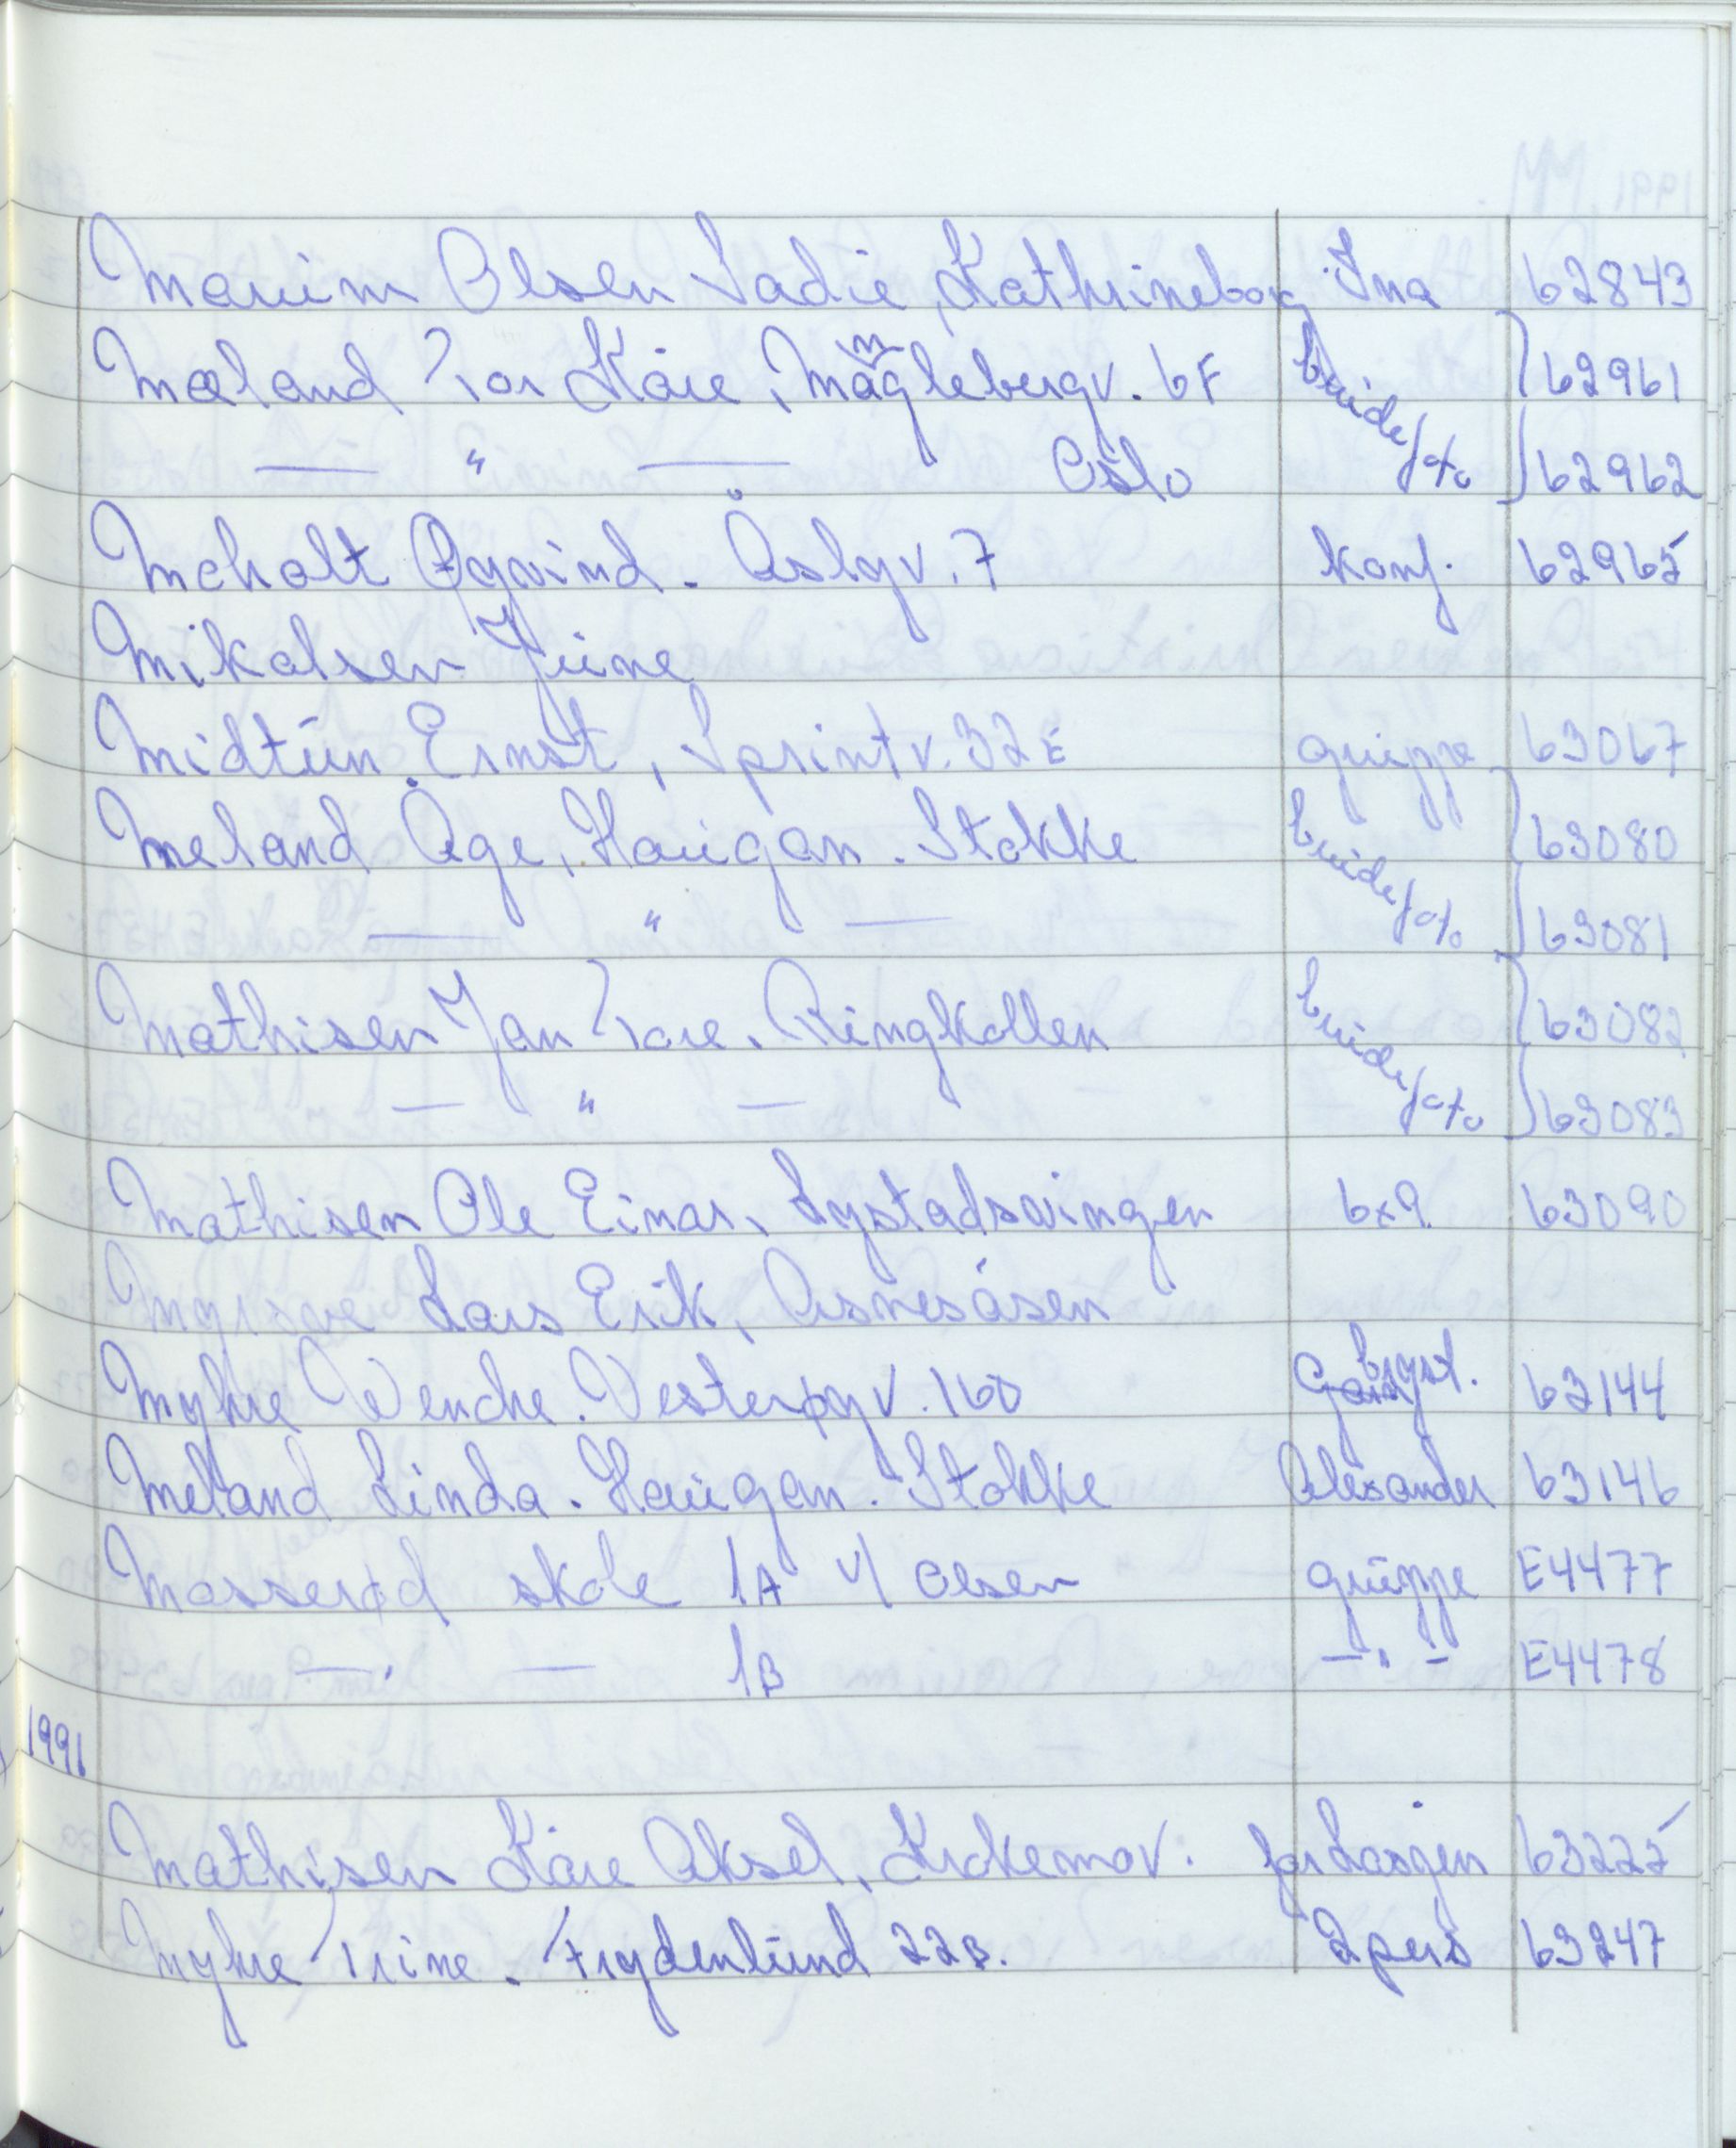 Mauim Olsen Sadie, Kathrineborg Ina 62843
Mæland Tor Kåre, Maglebergv. 6F brudefoto 62961
— " — Oslo 62962
Moholt Øyvind. Åslyv. 7 konf. 62965
Mikalsen June
Midtun Ernst, Sprintv. 32E gruppe 63067
Meland Åge, Haugan. Stokke brudefoto 63080
— " — 63081
Mathisen Jan Tore. Ringkollen brudefoto 63082
— " — 63083
Mathisen Ole Einar, Lystadsvingen 6x9 63090
Lars Erik, Åsnesåsen
Myhre Wenche. Vesterøyv. 160 bryst. 63144
Meland Linda. Haugan. Stokke Alexander 63146
Mosserød skole 1A v/ Olsen gruppe E4477
— " — 1B — " — E4478
1991
Mathisen Kåre Aksel, Krokemov. Jørgen 63225
Myhre Trine. Frydenlund 22B. 2 pers 63247